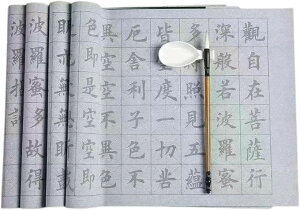 觀自在菩薩行
深般若波羅蜜
多照見五蘊
皆度一切苦
厄舍利子色不
異空空不異色
色即是空空即
亦無無
波羅蜜多故得
波羅揭